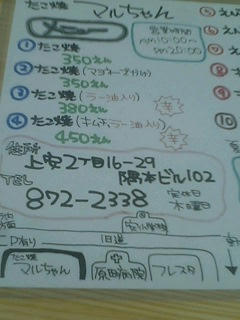 たこ焼 マルちゃん
営業時間
AM10:00〜
PM20:00
① たこ焼
350えん
② たこ焼(マヨネーズ付け)
350えん
③ たこ焼(ラー油入り)
380えん
辛
④ たこ焼(キムチ,ラー油入り)
450えん
辛
⑤
⑥
⑦
⑧
⑨
⑩
住所
上安2丁目16-29
隅本ビル102
TEL
872-2338
定休日
木曜日
安小学校
P有り
旧道
たこ焼
マルちゃん
原田病院
フレスタ